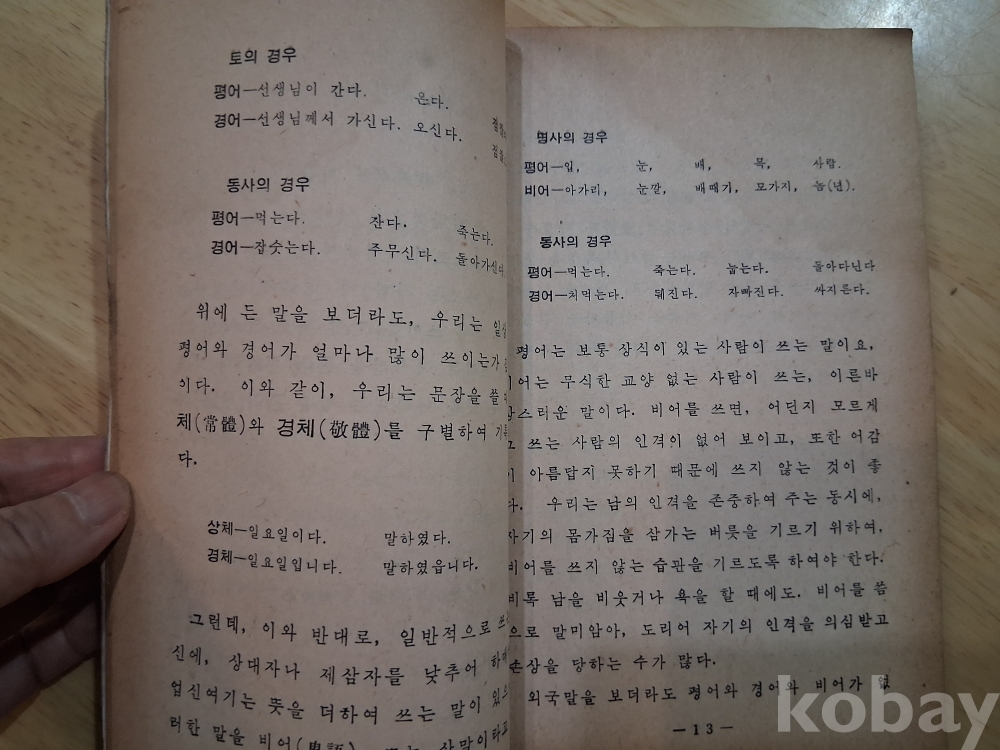 토의 경우
평어—선생님이 간다. 온다.
경어—선생님께서 가신다. 오신다.
동사의 경우
평어—먹는다. 잔다. 죽는다.
경어—잡숫는다. 주무신다. 돌아가신다.
위에 든 말을 보더라도, 우리는 일상
평어와 경어가 얼마나 많이 쓰이는가
이다. 이와 같이, 우리는 문장을 쓸
체(常體)와 경체(敬體)를 구별하여 기록
다.
상체—일요일이다. 말하였다.
경체—일요일입니다. 말하였읍니다.
그런데, 이와 반대로, 일반적으로
신에, 상대자나 제삼자를 낮추어
업신여기는 뜻을 더하여 쓰는 말이
러한 말을 비어(卑語)
명사의 경우
평어—입, 눈, 배, 목, 사람.
비어—아가리, 눈깔, 배때기, 모가지, 놈(년).
동사의 경우
평어—먹는다. 죽는다. 눕는다. 돌아다닌다
경어—처먹는다. 뒈진다. 자빠진다. 싸지른다.
평어는 보통 상식이 있는 사람이 쓰는 말이요,
어는 무식한 교양 없는 사람이 쓰는, 이른바
스러운 말이다. 비어를 쓰면, 어딘지 모르게
그 쓰는 사람의 인격이 없어 보이고, 또한 어감
이 아름답지 못하기 때문에 쓰지 않는 것이 좋
다. 우리는 남의 인격을 존중하여 주는 동시에,
자기의 몸가짐을 삼가는 버릇을 기르기 위하여,
비어를 쓰지 않는 습관을 기르도록 하여야 한다.
비록 남을 비웃거나 욕을 할 때에도. 비어를 씀
으로 말미암아, 도리어 자기의 인격을 의심받고
손상을 당하는 수가 많다.
외국말을 보더라도 평어와 경어와 비어가 없
—13—
kobay